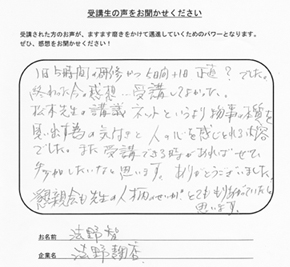 受講生の声をお聞かせください
受講された方のお声が、ますます磨きをかけて邁進していくためのパワーとなります。
ぜひ、感想をお聞かせください！
1日5時間の研修かつ5日間+1日 正直？でした。
終わった今の感想… 受講してよかった。
松本先生の講議 ネットというより物事の本質を
見い出す為の気付きと人のルを感じられる内容
でした。また受講できる時があればぜひ
参加したいなと思います。ありがとうございました。
懇親会も先生の人柄のせいかとても
思います。
お名前
企業名